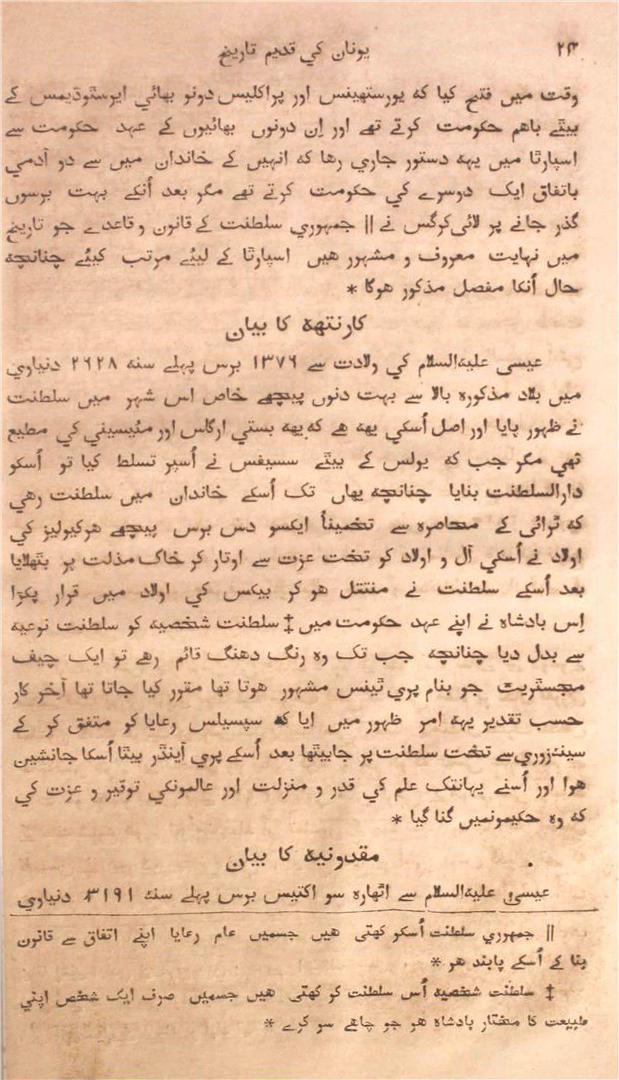 ۲۴ یونان کي قدیم تاریخ
وقت میں فتح کیا که یورستھینس اور پراکلیس دونو بھائي ایرسٹوڈیمس کے
بیٹے باھم حکومت کرتے تھے اور اِن دونوں بھائیوں کے عہد حکومت سے
اسپارٹا میں یہه دستور جاري رھا که انہیں کے خاندان میں سے دو آدمي
باتفاق ایک دوسرے کي حکومت کرتے تھے مگر بعد اُنکے بہت برسوں
گذر جانے پر لائی‌کرگس نے || جمہوري سلطنت کے قانون و قاعدے جو تاریخ
میں نہایت معروف و مشہور ھیں اسپارٹا کے لیئے مرتب کیئے چنانچه
حال اُنکا مفصل مذکور ھوگا *
کارنتھه کا بیان
عیسی علیه‌السلام کي ولادت سے ۱۳۷۶ برس پہلے سنه ۲۶۲۸ دنیاوي
میں بلاد مذکورہ بالا سے بہت دنوں پیچھے خاص اس شہر میں سلطنت
نے ظہور پایا اور اصل اُسکي یهه ھے که یهه بستي ارگاس اور مئیسیني کي مطیع
تھي مگر جب که یولس کے بیٹے سسیفس نے اُسپر تسلط کیا تو اُسکو
دارالسلطنت بنایا چنانچه یہاں تک اُسکے خاندان میں سلطنت رھي
که ٹرائی کے محاصرہ سے تخمیناً ایکسو دس برس پیچھے ھرکیولیز کي
اولاد نے اُسکي آل و اولاد کو تخت عزت سے اوتار کر خاک مذلت پر بٹھلایا
بعد اُسکے سلطنت نے منتقل ھو کر بیکس کي اولاد میں قرار پکڑا
اِس بادشاہ نے اپنے عہد حکومت میں ‡ سلطنت شخصیه کو سلطنت نوعیه
سے بدل دیا چنانچه جب تک وہ رنگ دھنگ قائم رھے تو ایک چیف
مجسٹریٹ جو بنام پري ٹینس مشہور ھوتا تھا مقرر کیا جاتا تھا آخر کار
حسب تقدیر یهه امر ظہور میں ایا که سپسیلس رعایا کو متفق کر کے
سینه‌زوري سے تخت سلطنت پر جابیٹھا بعد اُسکے پري آینڈر بیٹا اُسکا جانشین
ھوا اور اُسنے یہانتک علم کي قدر و منزلت اور عالمونکي توقیر و عزت کي
که وہ حکیمونمیں گنا گیا *
مقدونیه کا بیان
عیسیٰ علیه‌السلام سے اٹھارہ سو اکتیس برس پہلے سنه ۳۱۹۱ دنیاوي
|| جمہوري سلطنت اُسکو کہتی ھیں جسمیں عام رعایا اپنے اتفاق سے قانون
بنا کے اُسکے پابند ھو *
‡ سلطنت شخصیه اُس سلطنت کو کہتی ھیں جسمیں صرف ایک شخص اپني
طبیعت کا مختار بادشاہ ھو جو چاھے سو کرے *